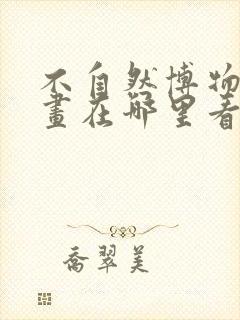 不自然博物
畫在哪里看
喬翠美